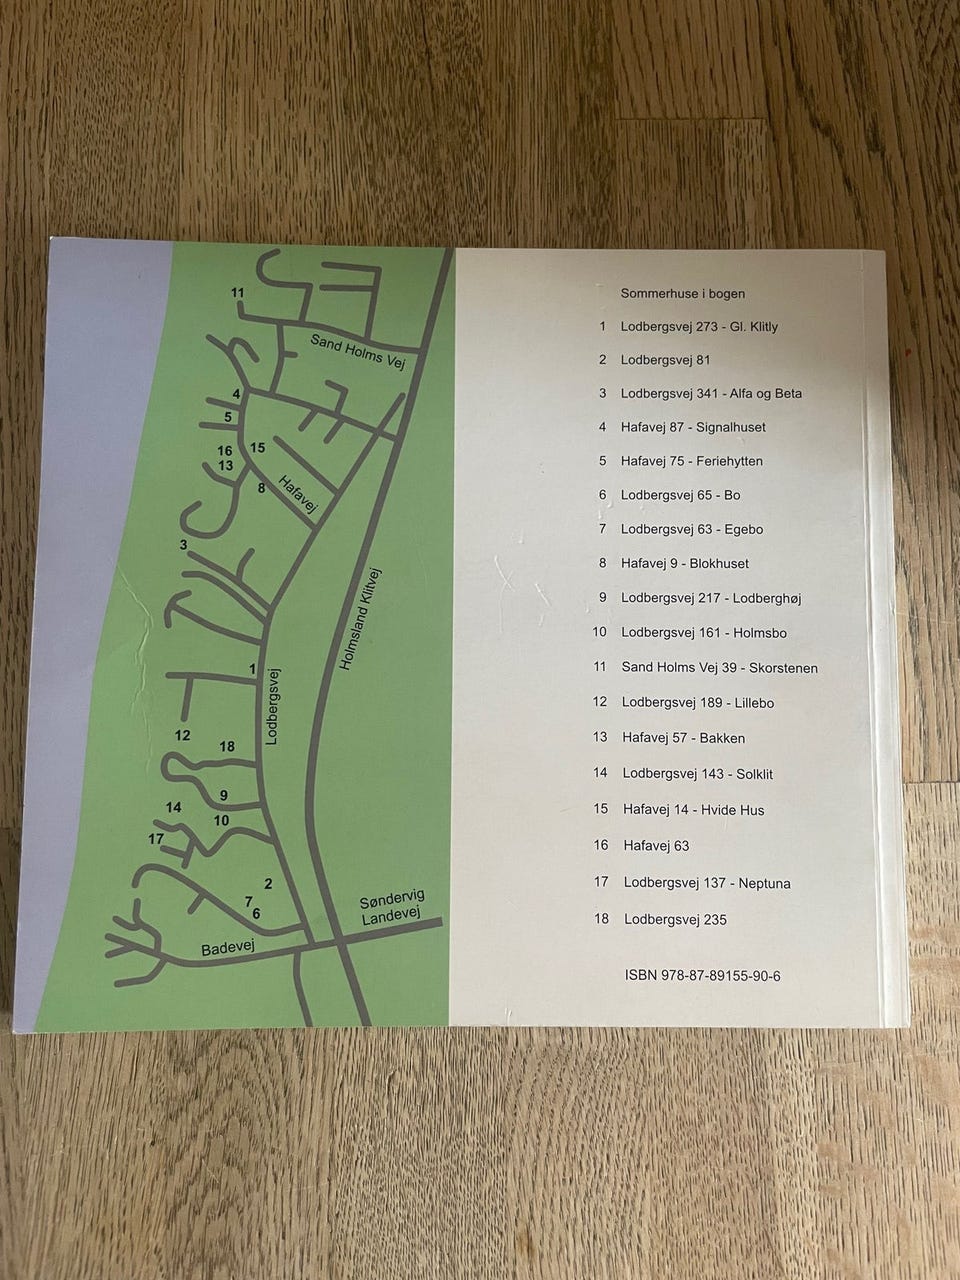 11
Sand Holms Vej
4
5
16
15
13
8
Hafavej
3
Holmsland Klitvej
1
Lodbergsvej
12
18
9
14
10
17
2
7
6
Søndervig
Landevej
Badevej
Sommerhuse i bogen
1 Lodbergsvej 273 - Gl. Klitly
2 Lodbergsvej 81
3 Lodbergsvej 341 - Alfa og Beta
4 Hafavej 87 - Signalhuset
5 Hafavej 75 - Feriehytten
6 Lodbergsvej 65 - Bo
7 Lodbergsvej 63 - Egebo
8 Hafavej 9 - Blokhuset
9 Lodbergsvej 217 - Lodberghøj
10 Lodbergsvej 161 - Holmsbo
11 Sand Holms Vej 39 - Skorstenen
12 Lodbergsvej 189 - Lillebo
13 Hafavej 57 - Bakken
14 Lodbergsvej 143 - Solklit
15 Hafavej 14 - Hvide Hus
16 Hafavej 63
17 Lodbergsvej 137 - Neptuna
18 Lodbergsvej 235
ISBN 978-87-89155-90-6